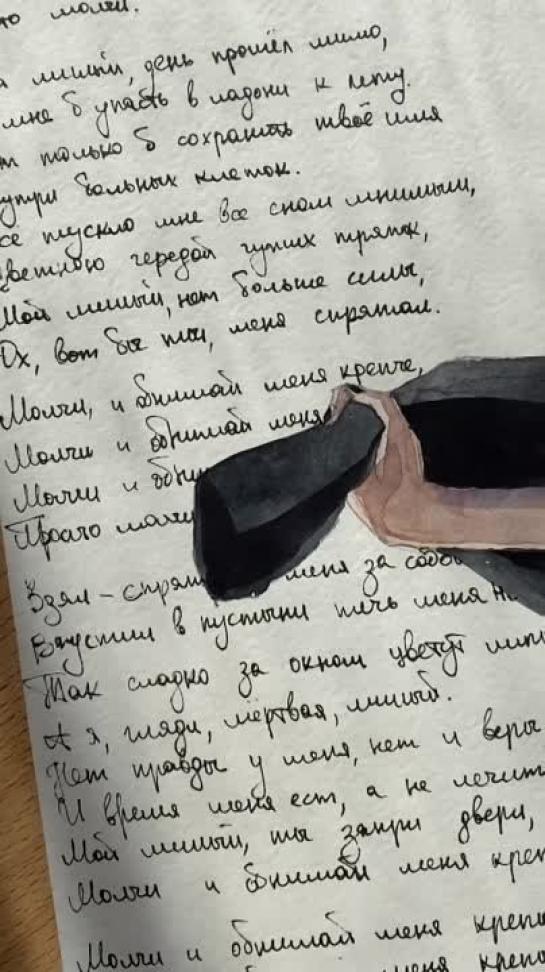 молчи.
милый, день прошёл мимо,
мне б упасть в ладони к лету.
только б сохранить твоё имя
внутри больных клеток.
тускло мне все сном мнимым,
Цветною чередой глупых тряпок,
Мой милый, нет больше силы,
Ох, вот бы ты, меня спрятал.
Молчи, и обнимай меня крепче,
Молчи и обнимай меня
Молчи и
Просто
Взял - меня за
Впустил в пустыни течь меня
Так сладко за окном цветут
А я, гляди, мёртвая, милый.
Нет правды у меня, нет и веры
И время меня ест, а не лечит
Мой милый, ты запри двери,
Молчи и обнимай меня
Молчи и обнимай меня
меня